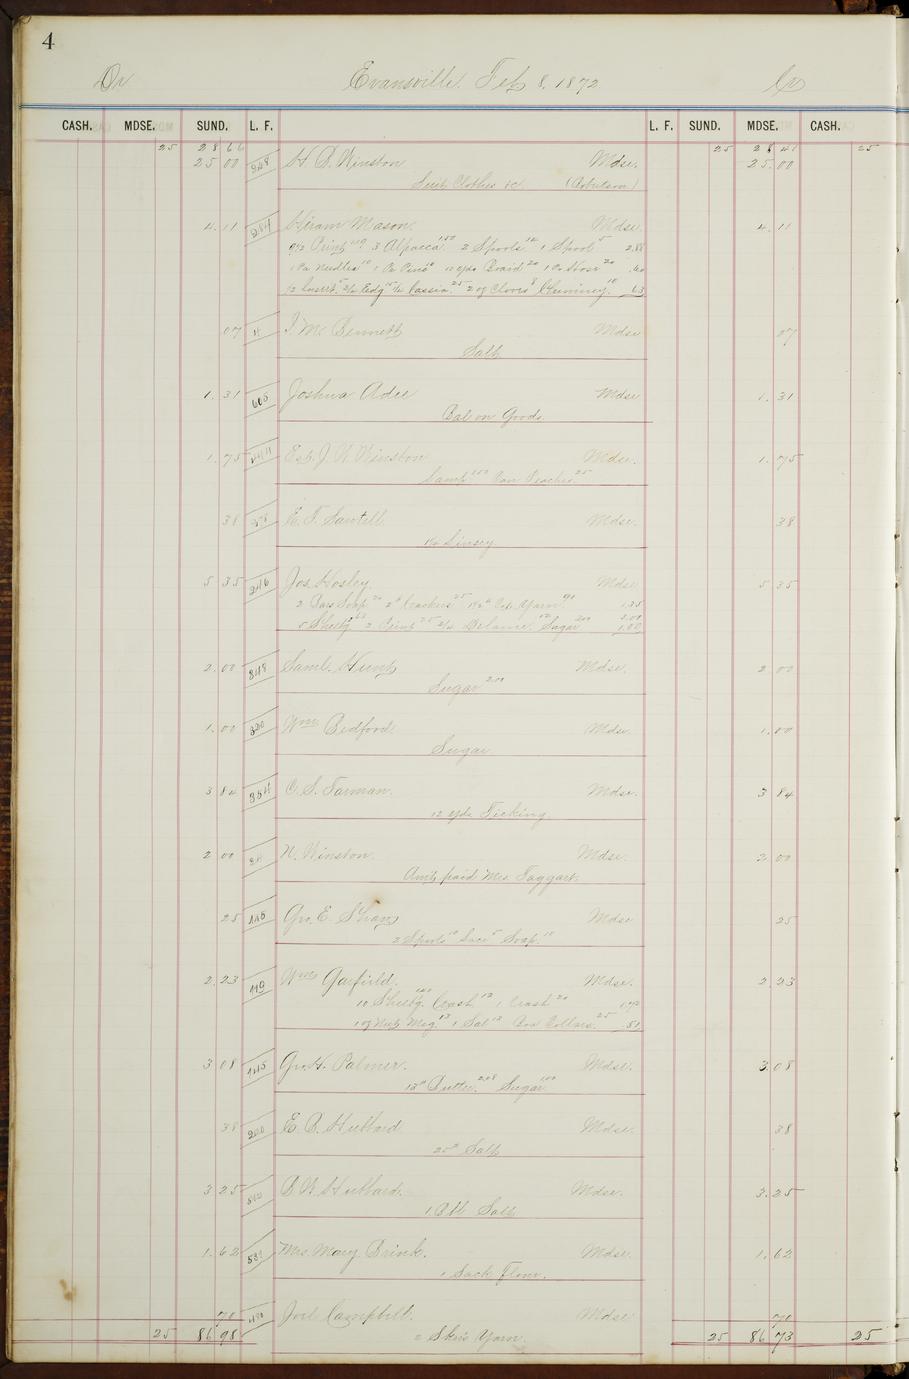 4
Dr Evansville Feb 8, 1872 Cr
CASH. MDSE. SUND. L. F. L. F. SUND. MDSE. CASH.
25 28 66 25 28 41 25
25 00 H. B. Winston Mdse. 25.00
Suit Clothes &c (Robutson)
4.11 Hiram Mason. Mdse 4.11
Print 3 Alpacca 150 2 Spools 14 1 Spool 5 2.88
1 Pa Needles 10 1 Pa Pins 10 yds Braid 20 1 Pr Hose 20 .60
1/2 Edg 15 1/4 Cassia 25 2 oz Cloves 8 Chimney 10 63
07 4 Bennett Mdse 07
Salt
1.31 605 Joshua Adee Mdse 1.31
Bal on Goods.
1.75 Est. J. W. Winston Mdse. 1.75
Can Peaches 25
38 58 E. F. Sawtell Mdse. 38
Linsey
5 35 246 Jos. Hosley Mdse 5 35
2 Bars Soap 20 2# Crackers 25 Yarn 90 1.35
5 Sheetg 2 Print 25 Delaine Sugar 200
1.00
2.00 348 Saml. Hunt Mdse. 2 00
Sugar 2.00
1.00 320 Wm Bedford. Mdse. 1.00
Sugar
3 84 354 C. S. Farman. Mdse. 3 84
12 yds Ticking
2 00 N. Winston. Mdse. 2.00
Amt paid Mrs Taggart.
25 Geo. E. Mdse 25
2 Spools 10 Lace 5 Soap 10
2.23 119 Wm Garfield. Mdse. 2 23
10 Sheetg. Crash 12 1 Crash 20
1 oz Nut Meg. 13 1 Sal 13 Box Collars 25 .51
3 08 145 Geo. H. Palmer. Mdse. 3.08
13# Butter 2.08 Sugar 1.00
38 200 E. B. Hubbard Mdse. 38
25# Salt
3 25 B. W. Hubbard. Mdse. 3.25
1 Bbl Salt
1.62 Mrs. Mary Brink. Mdse. 1.62
1 Sack Flour.
70 Joel Campbell. Mdse 70
25 86 98 2 Skeins Yarn. 25 86 73 25